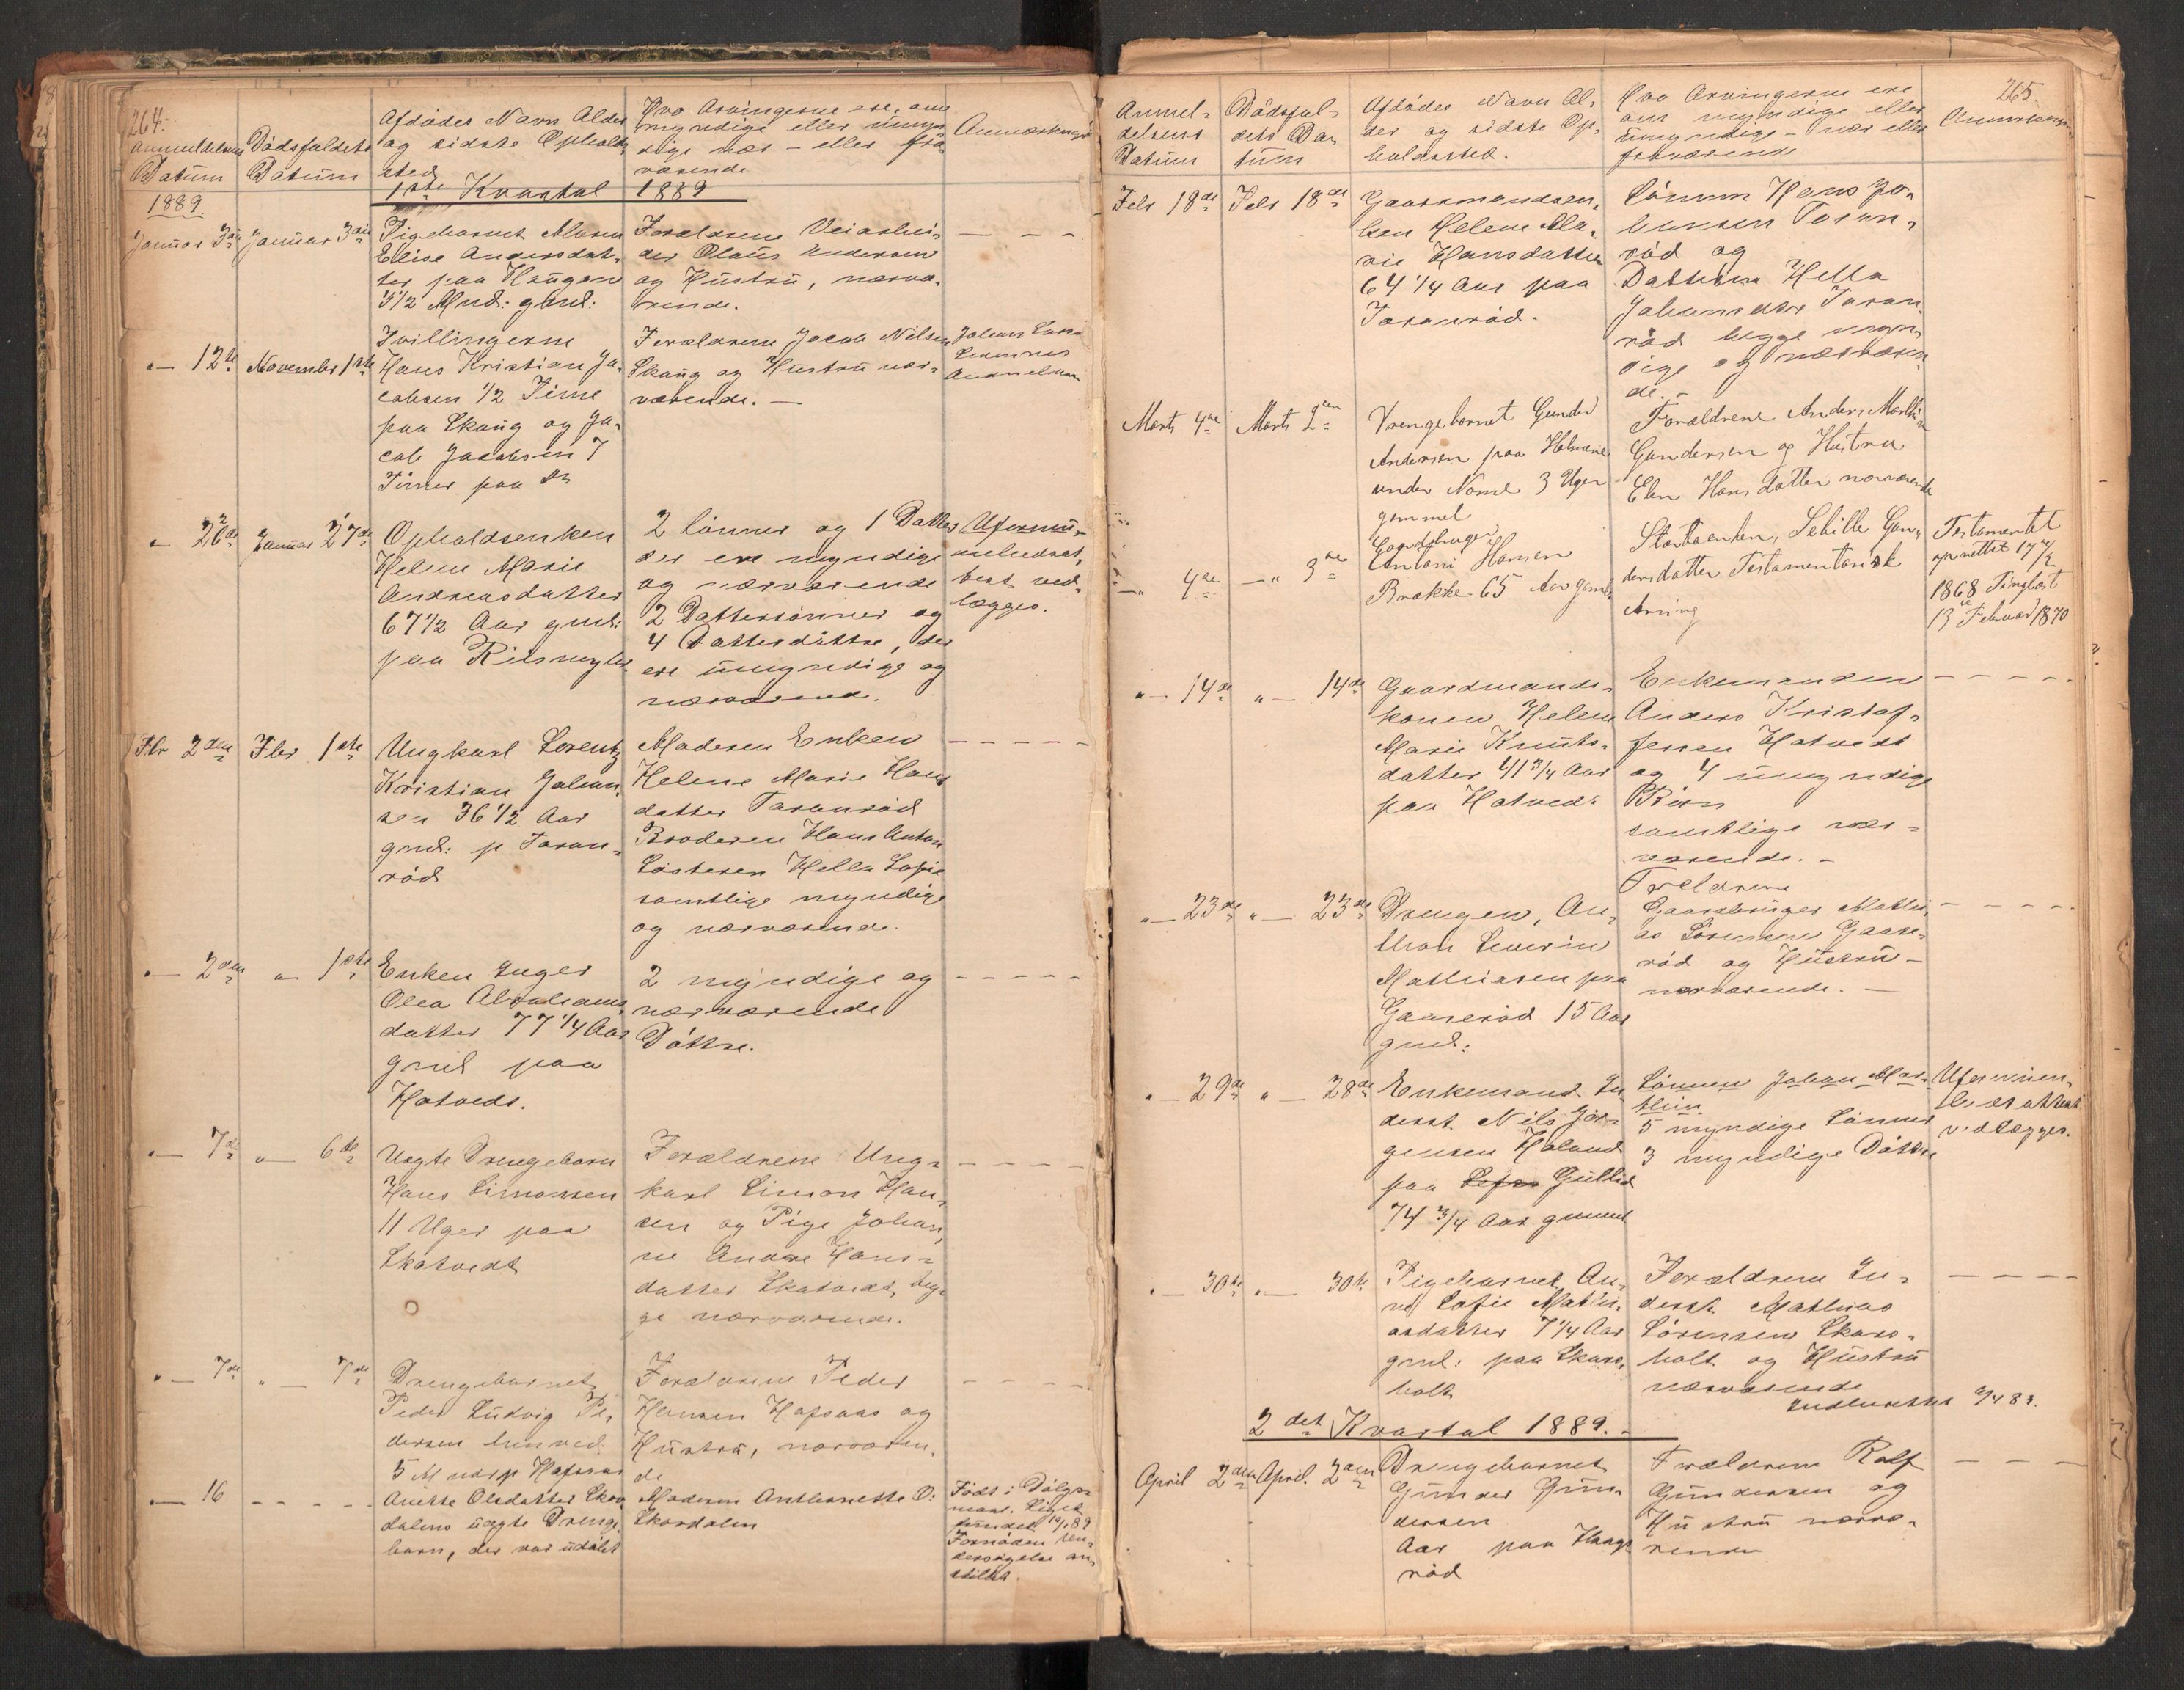 264.
Anmeldelsens
Datum
Dödsfaldets
Datum
Afdödes Navn Alder
og sidste Ophold-
sted
Hvo Arvingerne ere, om
myndige eller umyn-
dige nær- eller fra-
værende
Anmærkning
1ste Kvartal 1889
1889.
Januar 3die
Januar 3die
Pigebarnet Maren
Elise Andersdat-
ter paa Haugen
3 1/2 Mnd: gml:
Forældrene Veiarbei-
der Olaus Andersen
og Hustru, nærvæ-
rende.
— — —
"— 12te
November 1ste
Tvillingerne
Hans Kristian Ja-
cobsen 1/2 Time
paa Skaug og Ja-
cob Jacobsen 7
Timer paa do
Forældrene Jacob Nilsen
Skaug og Hustru nær-
værende. —
Johan
"— 26de
Januar 27de
Opholdsenken
Helene Marie
Andreasdatter
67 1/2 Aar gml:
paa
2 Sönner og 1 Datter
der ere myndige
og nærværende
2 Dattersönner og
4 Datterdöttre, der
ere umyndige og
nærværende.
Uformu-
enhedsat-
test ved-
lægges.
Fbr 2den
Fbr 1ste
Ungkarl Lorentz
Kristian Johan-
sen 36 1/2 Aar
gml: p Taran-
röd
Moderen Enken
Helene Marie Hans
datter Taranröd
Broderen Hans Anton
Sösteren Hella Sofie
samtlige myndige
og nærværende.
— — — —
"— 2den
"— 1ste
Enken Inger
Olea Abrahams-
datter 77 1/4 Aar
gml paa
Hotvedt.
2 myndige og
nærværende
Döttre.
— — — —
"— 7de
"— 6de
Uægte Drengebarn
Hans Simonsen
11 Uger paa
Skatvedt
Forældrene Ung-
karl Simon Han-
sen og Pige Johan-
ne Andrea Hans-
datter Skatvedt, beg-
ge nærværende.
— — — —
"— 7de
"— 7de
Drengebarnet
Peder Ludvig Pe-
dersen henved
5 Mndr p Hafsaas
Forældrene Peder
Hansen Hafsaas og
Hustru, nærværen-
de
— — — —
"— 16
— — — —
Anette Olsdatter Skor
dalens uægte Drenge-
barn, der var udöbt
Moderen Anthonette O:
Skordalen
Födt i Dölgs-
maal. Liget
fundet 12/1 89
Fornöden Un-
dersögelse an-
stillet.
265.
Anmel-
delsens
Datum
Dödsfal-
dets Da-
tum
Afdödes Navn Al-
der og sidste Op-
holdssted.
Hvo Arvingerne ere
om myndige eller
umyndige - nær eller
fraværende
Febr 18de
Febr 18de
Gaardmandsen-
ken Helene Ma-
rie Hansdatter
64 1/4 Aar paa
Taranröd.
Sönnen Hans Jo-
hansen Taran-
röd og
Datteren Hella
Johansdtr Taran-
röd begge myn-
dige og nærværen-
de. -
Marts 4de
Marts 2den
Drengebarnet Gunder
Andersen paa Holmene
under Nome 3 Uger
gammel
Forældrene Anders Marthin
Gundersen og Hustru
Elen Hansdatter nærværende
"— 4de
—" 3de
Gaardbruger
Antoni Hansen
Brække 65 Aar gaml:
Sterboenken, Sibille Gun-
dersdatter Testamentarisk
Arving
Testamentet
oprettet 17/2
1868 Tinglæst
13de Februar 1870
"— 14de
"— 14de
Gaardmands-
konen Helene
Marie Knuts-
datter 41 3/4 Aar
paa Hotvedt
Enkemanden
Anders Kristof-
fersen Hotvedt
og 4 umyndige
Börn
samtlige nær-
værende. -
— — — — —
"— 23de
"— 23de
Drengen, An-
thon Severin
Mathiasen paa
Gaaseröd 15 Aar
gml:
Forældrene
Gaardbruger Mathi-
as Sörensen Gaase-
röd og Hustru -
nærværende. —
— — — —
"— 29de
"— 28de
Enkemand In-
derst. Nils Jör-
gensen Holand
paa Gullid
74 3/4 Aar gammel
Sönnen Johan Mar-
thin
5 myndige Sönner
3 myndige Döttre
Uformuen-
hedsattest
vedlægges.
"— 30te
"— 30te
Pigebarnet An-
na Sofie Mathi-
asdatter 7 1/4 Aar
gml: paa Skars-
holt
Forældrene In-
derst Mathias
Sörensen Skars-
holt og Hustru
nærværende
— — — —
Indberettet 4/4 89.
2det Kvartal 1889. -
April 2den
April. 2den
Drengebarnet
Gunder Gun-
dersen
Aar paa Haug-
röd
Forældrene Rolf
Gundersen og
Hustru nærvæ-
rende
— — — —